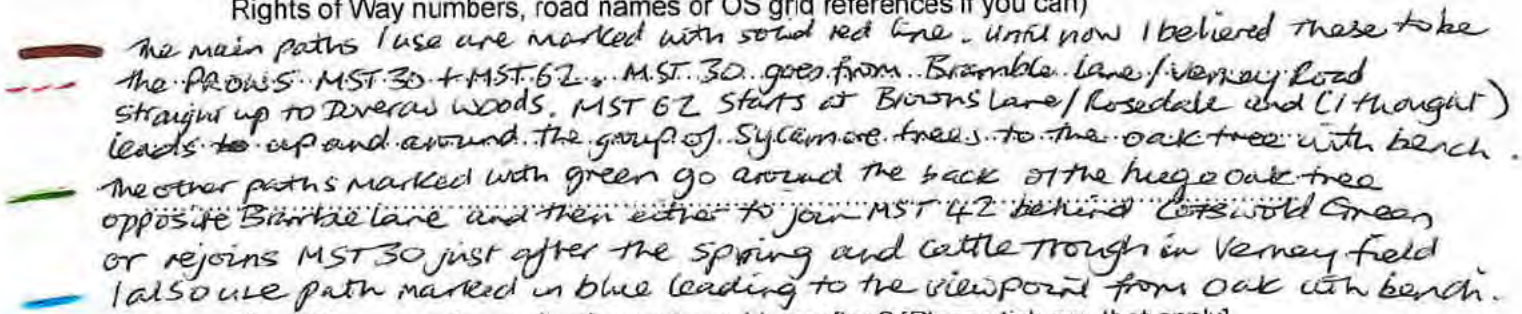 Rights of Way numbers, road names or OS grid references if you can)
The main paths I use are marked with solid red line. Until now I believed these to be
the PROWS MST 30 + MST 62. MST 30 goes from Bramble Lane/Verney Road
straight up to Doveraw Woods. MST 62 starts at Browns Lane/Rosedale and (I thought)
leads to up and around the group of Sycamore trees to the oak tree with bench.
The other paths marked with green go around the back of the huge oak tree
opposite Bramble Lane and then either to join MST 42 behind Cotswold Green
or rejoins MST 30 just after the spring and cattle trough in Verney field
I also use path marked in blue leading to the viewpoint from oak with bench.